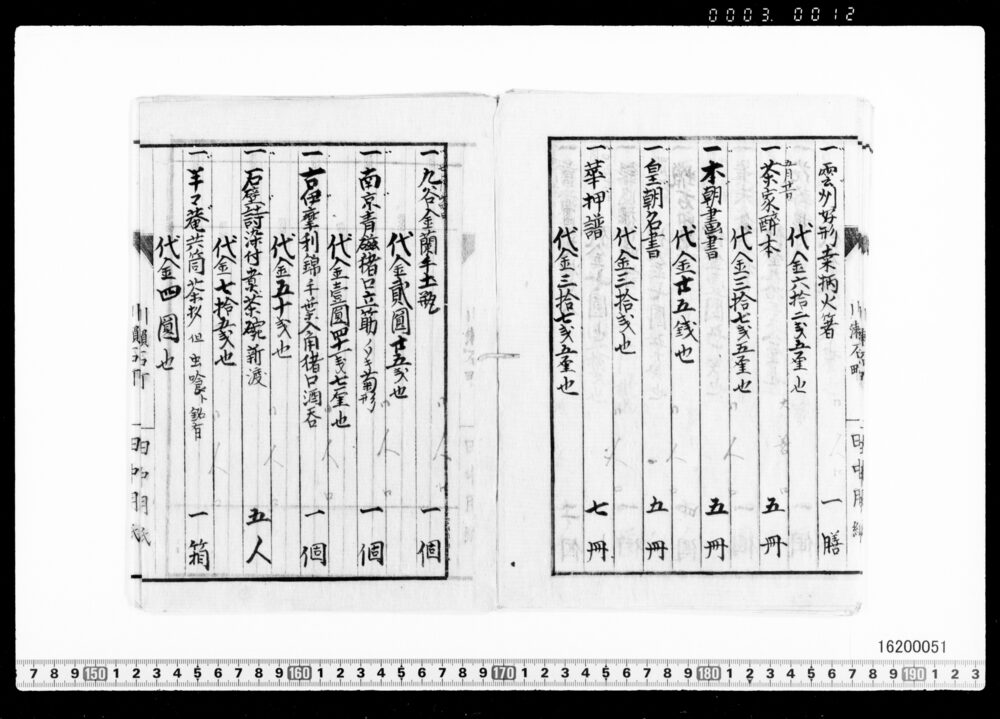 0003. 0012
一 雲州好形桑柄火箸 一膳
代金六拾二銭五厘也
一 茶家醉本 五冊
代金三拾七銭五厘也
一 本朝畫書 五冊
代金廿五銭也
一 皇朝名書 五冊
代金三拾銭也
一 華押譜 七冊
代金三拾七銭五厘也
一 九谷金蘭手土瓶 一個
代金貳圓廿五銭也
一 南京青磁猪口立筋 菊形 一個
代金壹圓四十一銭七厘也
一 古伊摩利錦手葉入角猪口酒呑 一個
代金五十銭也
一 石壁詩染付煎茶碗 新渡 五人
代金七拾五銭也
一 羊々菴共筒茶杓 但虫喰ト銘有 一箱
代金四圓也
16200051
7 8 9 150 1 2 3 4 5 6 7 8 9 160 1 2 3 4 5 6 7 8 9 170 1 2 3 4 5 6 7 8 9 180 1 2 3 4 5 6 7 8 9 190 1 2 3